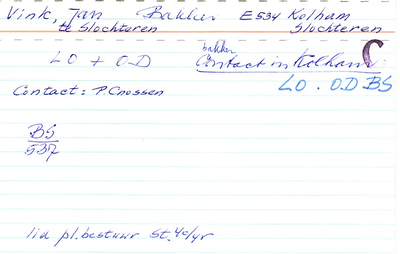 Vink, Jan Bakker E534 Kolham
te Slochteren Slochteren
LO + O.D bakker C
Contact in Kolham:
LO . O.D BS
Contact: P. Cnossen
BS
537
lid pl. bestuur St. 40/45